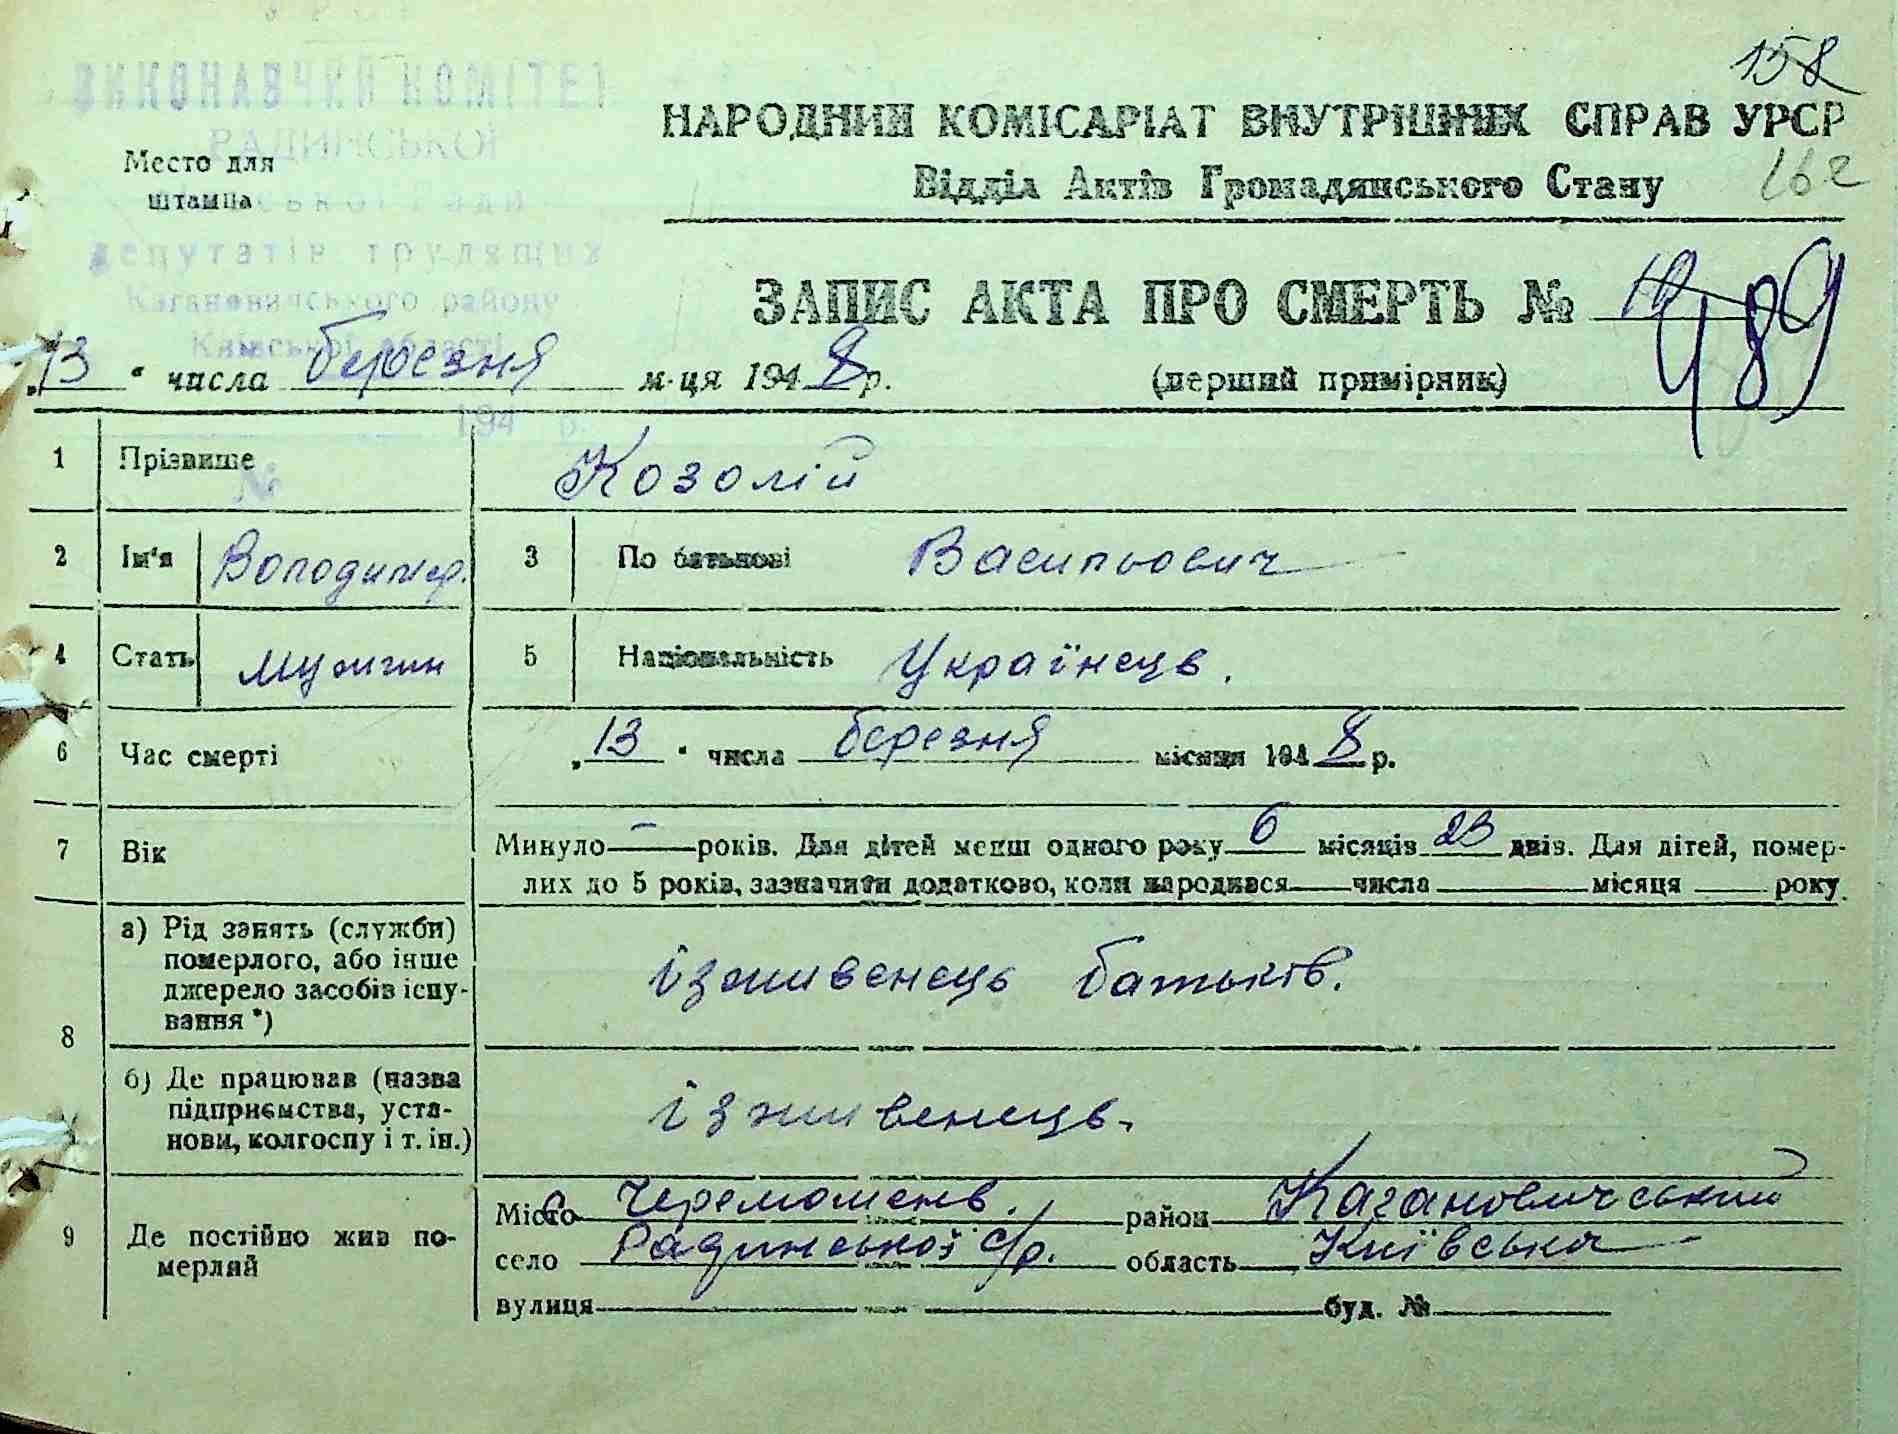 158
ВИКОНАВЧИЙ КОМІТЕТ
РАДИНСЬКОЇ
НАРОДНИЙ КОМІСАРІАТ ВНУТРІШНІХ СПРАВ УРСР
Место для
штампа
сільської Ради
Відділ Актів Громадянського Стану
162
депутатів трудящих
Кагановичського району
Київської області
ЗАПИС АКТА ПРО СМЕРТЬ № 489
„13“ числа березня м-ця 1948 р.
(перший примірник)
194 р.
№
1 Прізвище Козолій
2 Ім'я Володимир. 3 По батькові Васильович
4 Стать мужчин 5 Національність Українець.
6 Час смерті „13“ числа березня місяця 1948 р.
7 Вік Минуло — років. Для дітей менш одного року 6 місяців 23 днів. Для дітей, помер-
лих до 5 років, зазначити додатково, коли народився числа місяця року
8 а) Рід занять (служби)
померлого, або інше
джерело засобів існу-
вання *)
іждивенець батьків.
б) Де працював (назва
підприємства, уста-
нови, колгоспу і т. ін.)
іждивенець.
9 Де постійно жив по-
мерлий
Місто с. Черемошень. район Кагановичський
село Радинської с/р. область Київська
вулиця буд. №